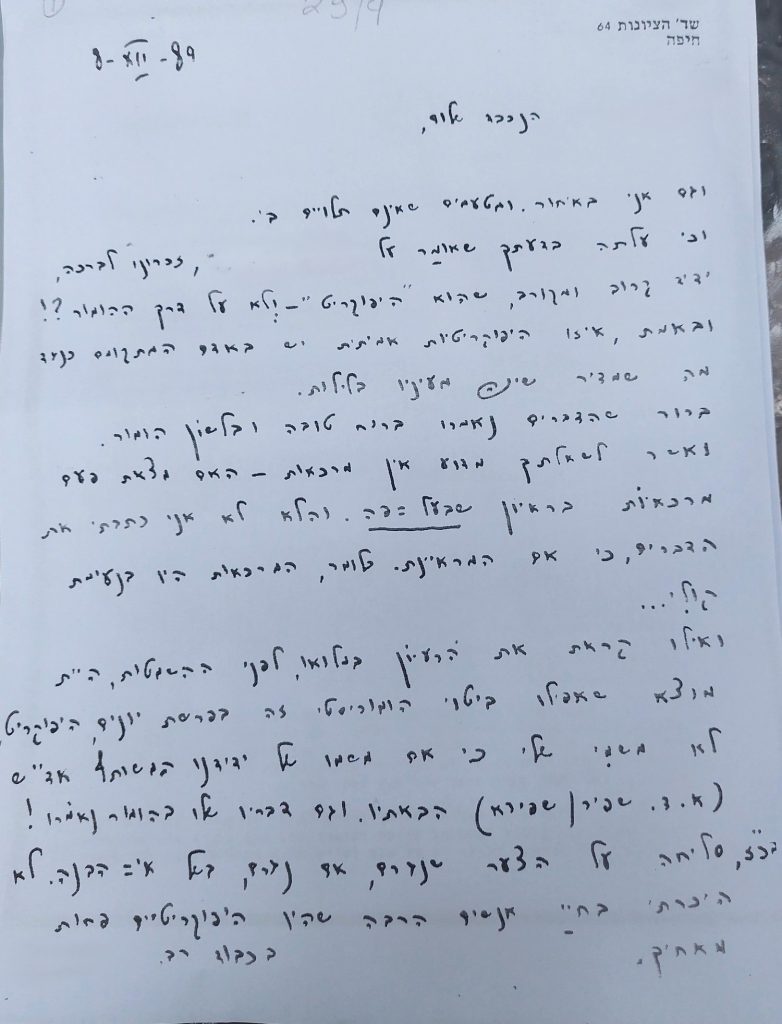 29/9
שד' הציונות 64
חיפה
8-XII-89
הנכבד שלום,
וגם אני באיחור. ומטעמים שאינם תלויים בי.
וכי עלתה בדעתך שאומַר על , זכרונו לברכה,
ידיד קרוב ומקורב, שהוא "היפוקריט" – ולא על דרך ההומור?!
ובאמת, איזו היפוקריטיות אמיתית יש באדם המתקומם כנגד
מה שמדיר שינה מעיניו בלילות.
ברור שהדברים נאמרו ברוח טובה ובלשון הומור.
ואשר לשאלתך מדוע אין מרכאות – האם מצאת פעם
מרכאות בראיון שבעל=פה. והלא לא אני כתבתי את
הדברים, כי אם המראיינת. כלומר, המרכאות היו בנעימת
קולי...
ואילו קראת את הרעיון במלואו, לפני ההשמטות, היית
מוצא שאפילו ביטוי הומוריסטי זה בפרשת יונים, היפוקריט,
לא משמי אלי כי אם משמו של ידידנו המשותף אד"ש
(א.ד. שפיר/שפירא) הבאתיו. וגם דבריו אלו בהומור נאמרו!
בכ"ז, סליחה על הצער שנגרם, אם נגרם, בשל אי=הבנה. לא
היכרתי בחיי אנשים הרבה שהיו היפוקריטיים פחות
מאחיך.
בכבוד רב.